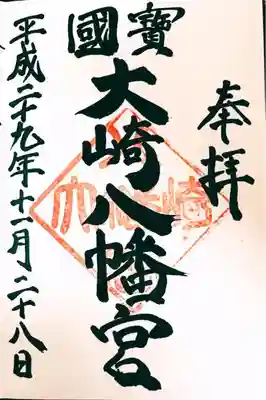 奉拝
國寶
大崎八幡宮
平成二十九年十一月二十八日